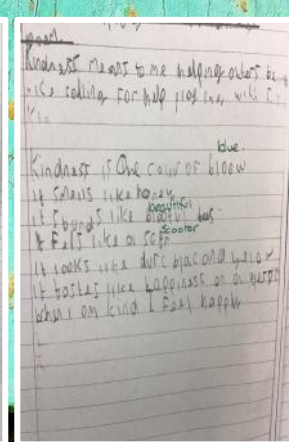 poem
Kindness means to me helping others
like calling for help
blue.
Kindness is One colour of bloow
It smells like honey
beautiful
It sounds like
scooter
It Fels like a
It looks like durc blac and yelow
It tastes like happiness on a
When I am kind I Feel happy